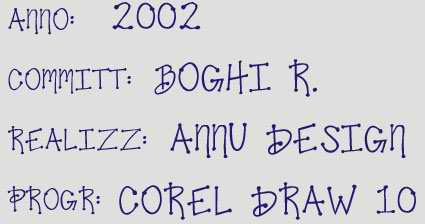 ANNO: 2002
COMMITT: BOGHI R.
REALIZZ: ANNU DESIGN
PROGR: COREL DRAW 10